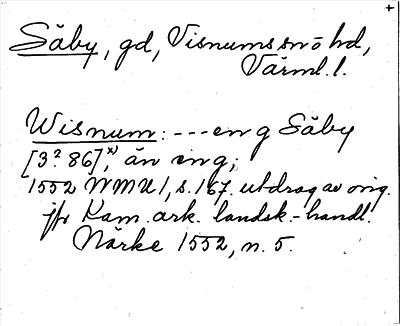 Säby, gd, Visnums snö hd,
Värml. l.
Wisnum: --- en g Säby
[3? 86],x) än en g;
1552 WMU 1, s. 167. utdrag av orig.
jfr Kam. ark. landsk.-handl.
Närke 1552, n. 5.